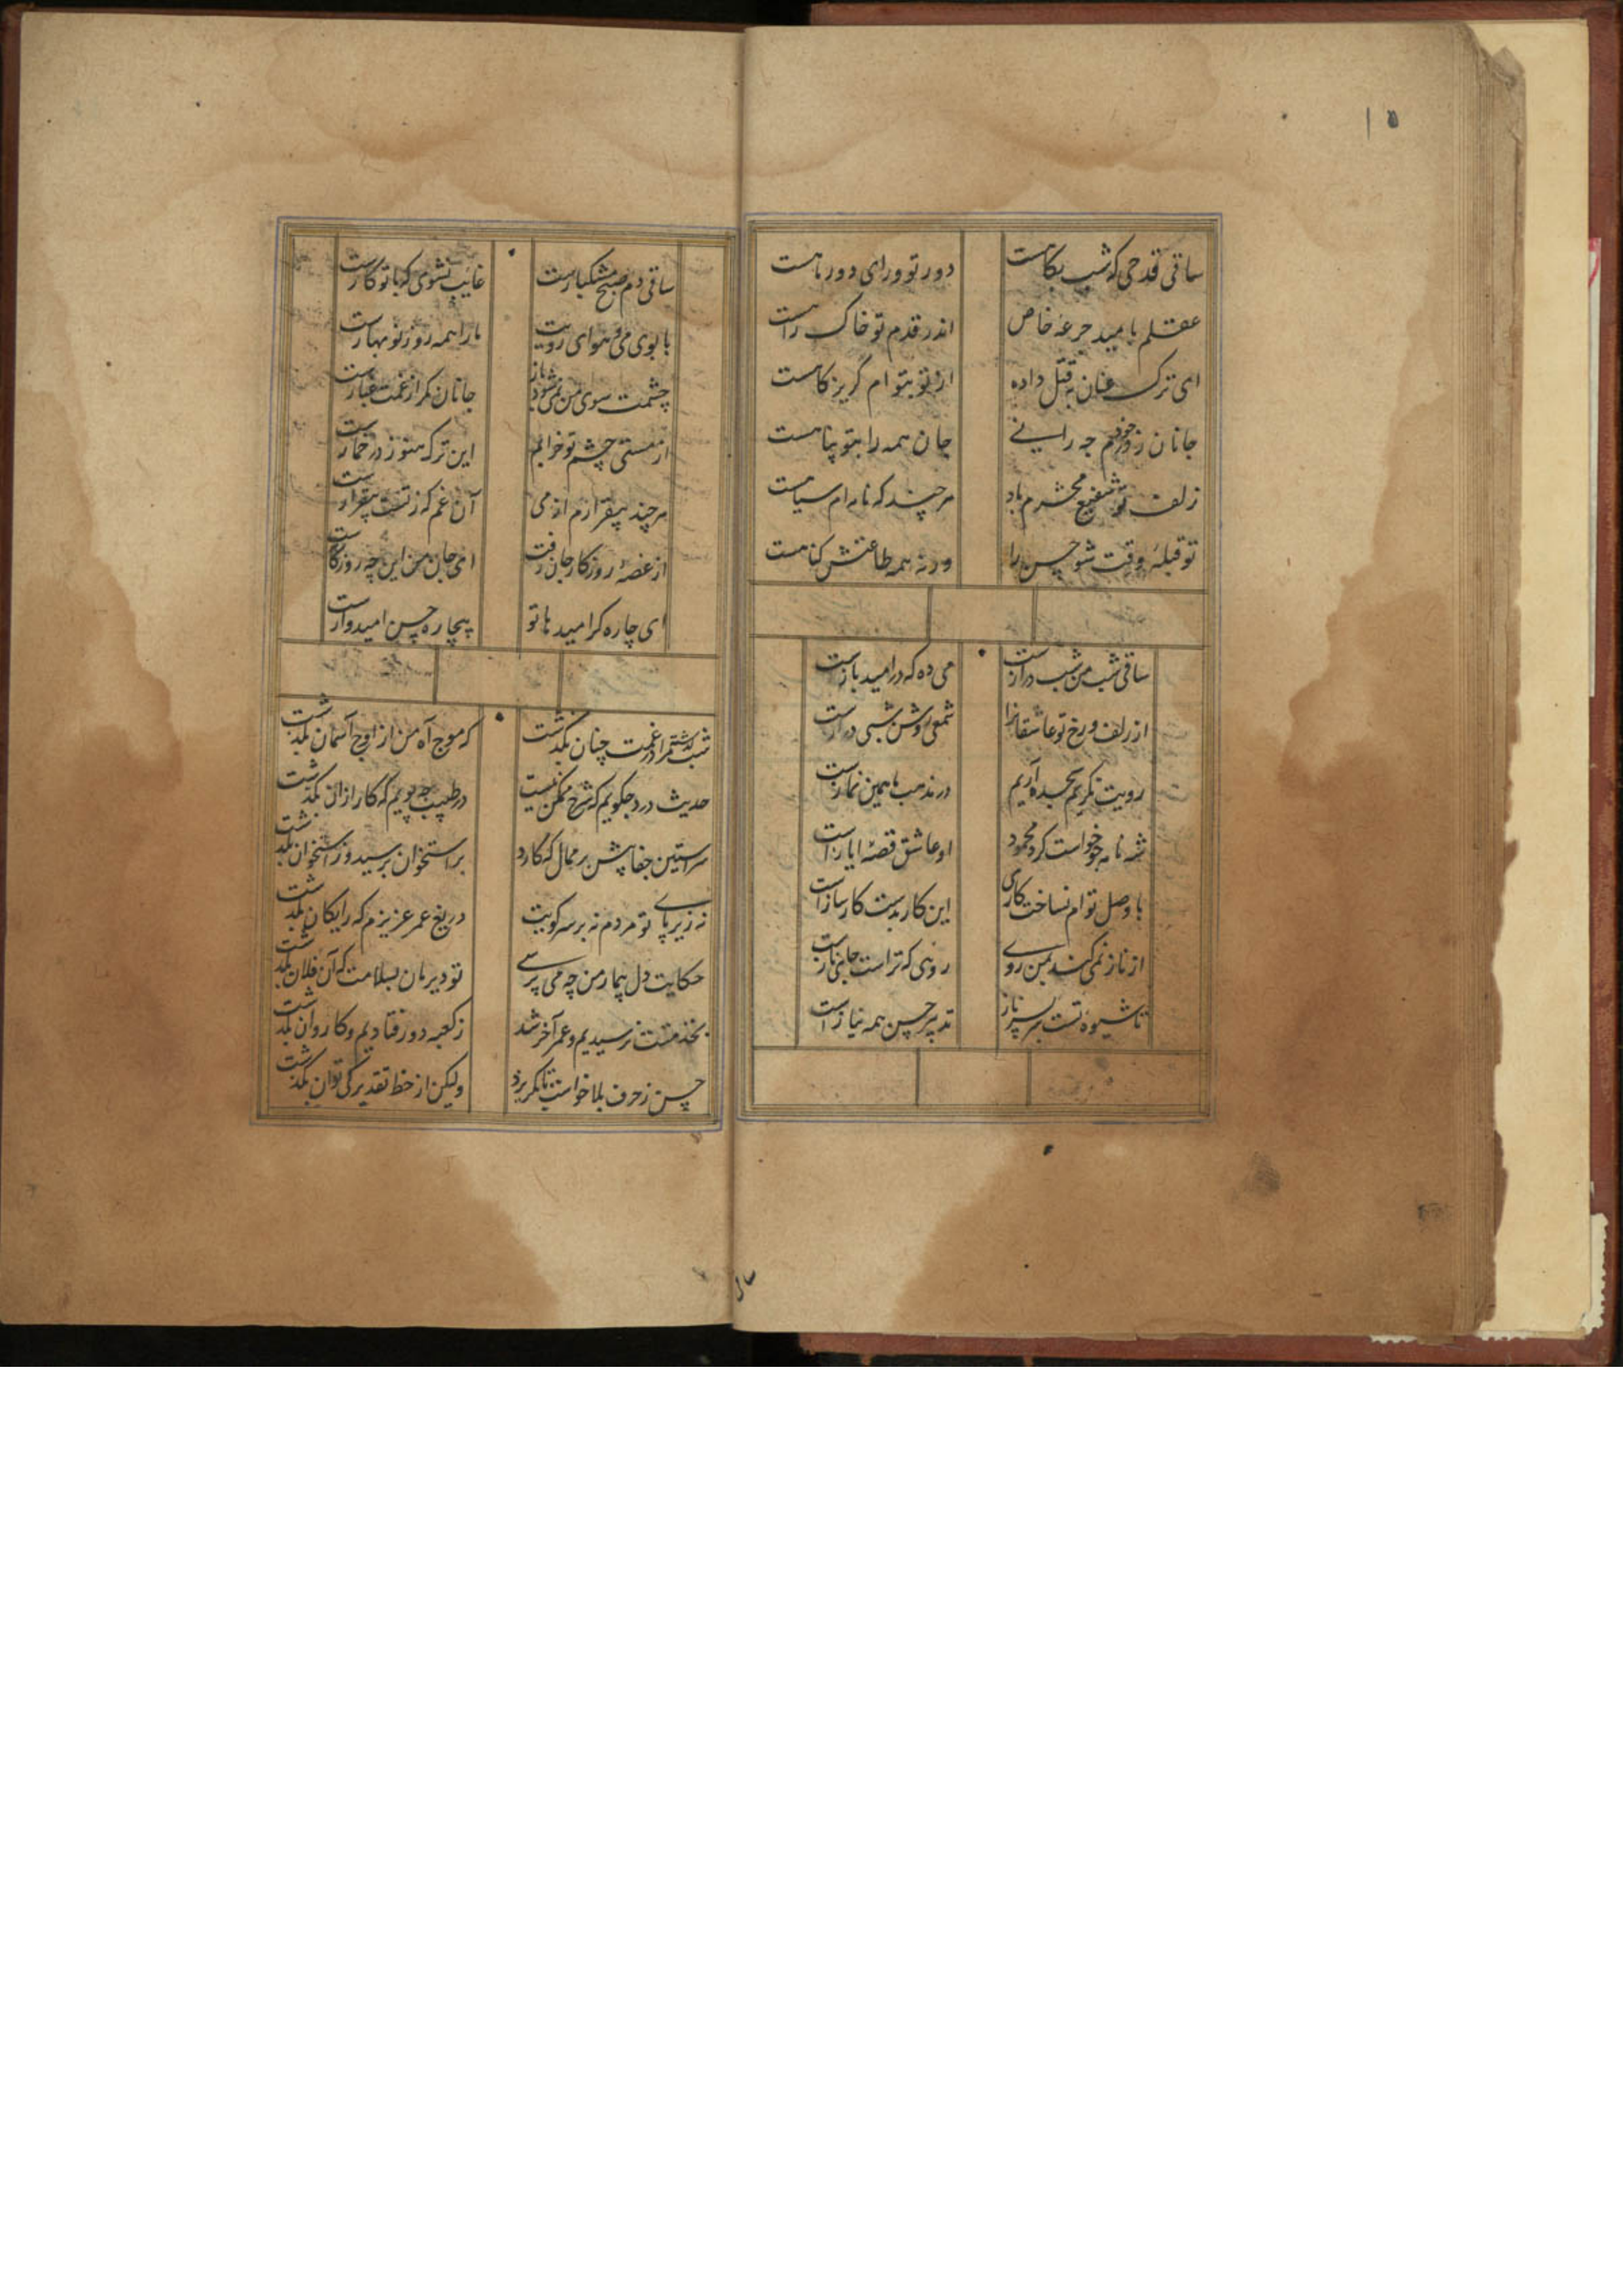 ۱۵
ساقی قدحی که شب بکاهست
دور تو ورای دور ماهست
عقلم بامید جرعهٔ خاص
اندر قدم تو خاک راهست
ای ترک عنان بقتل داده
از تو بتوام گریزکاهست
جانان ز درخودم چه رانی
جان همه را بتو پناهست
زلف تو شفیع محشرم باد
هرچند که نامه‌ام سیاهست
تو قبلهٔ وقت شو حسن را
ورنه همه طاعتش کناهست
ساقی شب من شب درازست
می ده که در امید بازست
از زلف و رخ تو عاشقانرا
شمعی روشن شبی درازست
رویت نکریم سجده آریم
در مذهب ما همین نمازست
شه نامه چو خواست کرد محمود
او عاشق قصهٔ ایازست
با وصل توام نساخت کاری
این کار بدست کارسازست
از ناز نمی‌کنی بمن روی
رویی که تراست جای نازست
تا شیوه تست سر بسر ناز
تدبیر حسن همه نیازست
ساقی دم صبح مشکبارست
غایب نشوی که با تو کارست
با بوی می و هوای رویت
ما را همه روز نوبهارست
چشمت سوی من نمی‌شود باز
جانان مکر از غمت غبارست
از مستی چشم تو خرابم
این ترک هنوز در خمارست
هرچند بیقرارم از می
آن غم که ز تست بیقرارست
از غصهٔ روزکار جان رفت
ای جان من این چه روزکارست
ای چاره کر امیدها تو
بیچاره حسن امیدوارست
شب کذشته مرا در غمت چنان بکذشت
که موج آه من از اوج آسمان بکذشت
حدیث درد چکویم که شرح ممکن نیست
در طبیب چه پویم که کار ازان بکذشت
سر استین جفا پیش بر ممال که کارد
بر استخوان برسید و ز استخوان بکذشت
نه زیر پای تو مردم نه بر سر کویت
دریغ عمر عزیزم که رایکان بکذشت
حکایت دل بیمار من چه می پرسی
تو دیر مان بسلامت که آن فلان بکذشت
بخدمتت نرسیدیم و عمر آخر شد
ز کعبه دور فتادیم و کاروان بکذشت
حسن ز حرف بلا خواست تا بکریزد
ولیکن از خط تقدیر کی توان بکذشت